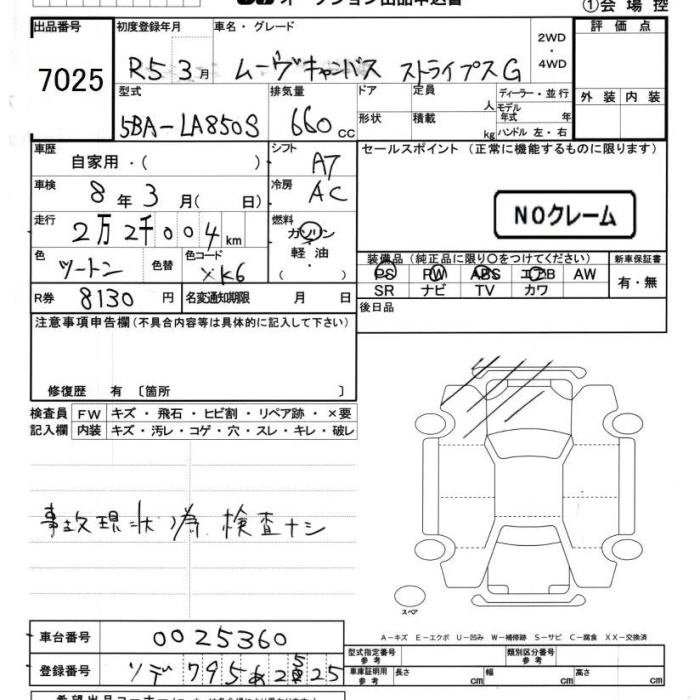 ①会場控
出品番号 初度登録年月 車名・グレード 評価点
7025
R5 3月 ムーヴキャンバス ストライプスG 2WD・4WD
型式 排気量 ドア 定員 人 ディーラー・並行 外装 内装
モデル年式 年
5BA-LA850S 660cc
形状 積載 kg ハンドル 左・右
車歴 自家用・( ) シフト A7 セールスポイント (正常に機能するものに限ります)
車検 8年3月( 日) 冷房 AC
NOクレーム
走行 2万2千004km 燃料 ガソリン・軽油・
色 ツートン 色替 色コード XK6
装備品 (純正品に限り○をつけてください) 新車保証書
PS PW ABS エアB AW 有・無
SR ナビ TV カワ
R券 8130円 名変通知期限 月 日
後日品
注意事項申告欄(不具合内容等は具体的に記入して下さい)
修復歴 有 〔箇所 〕
検査員 FW キズ・飛石・ヒビ割・リペア跡・×要
記入欄 内装 キズ・汚レ・コゲ・穴・スレ・キレ・破レ
事故現状の為 検査ナシ
スペア
A-キズ E-エクボ U-凹み W-補修跡 S-サビ C-腐食 XX-交換済
車台番号 0025360
型式指定番号 参考 類別区分番号 参考
登録番号
車庫証明用 参考 長さ cm 幅 cm 高さ cm